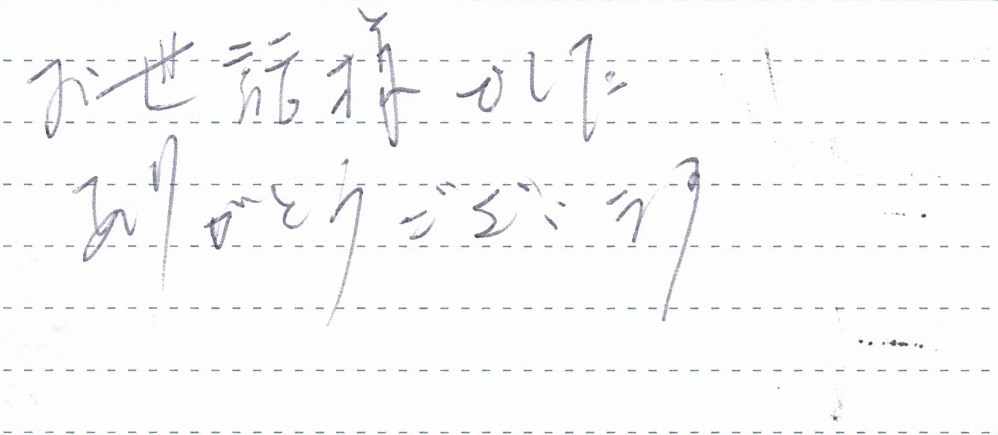 お世話様でした
ありがとうございます